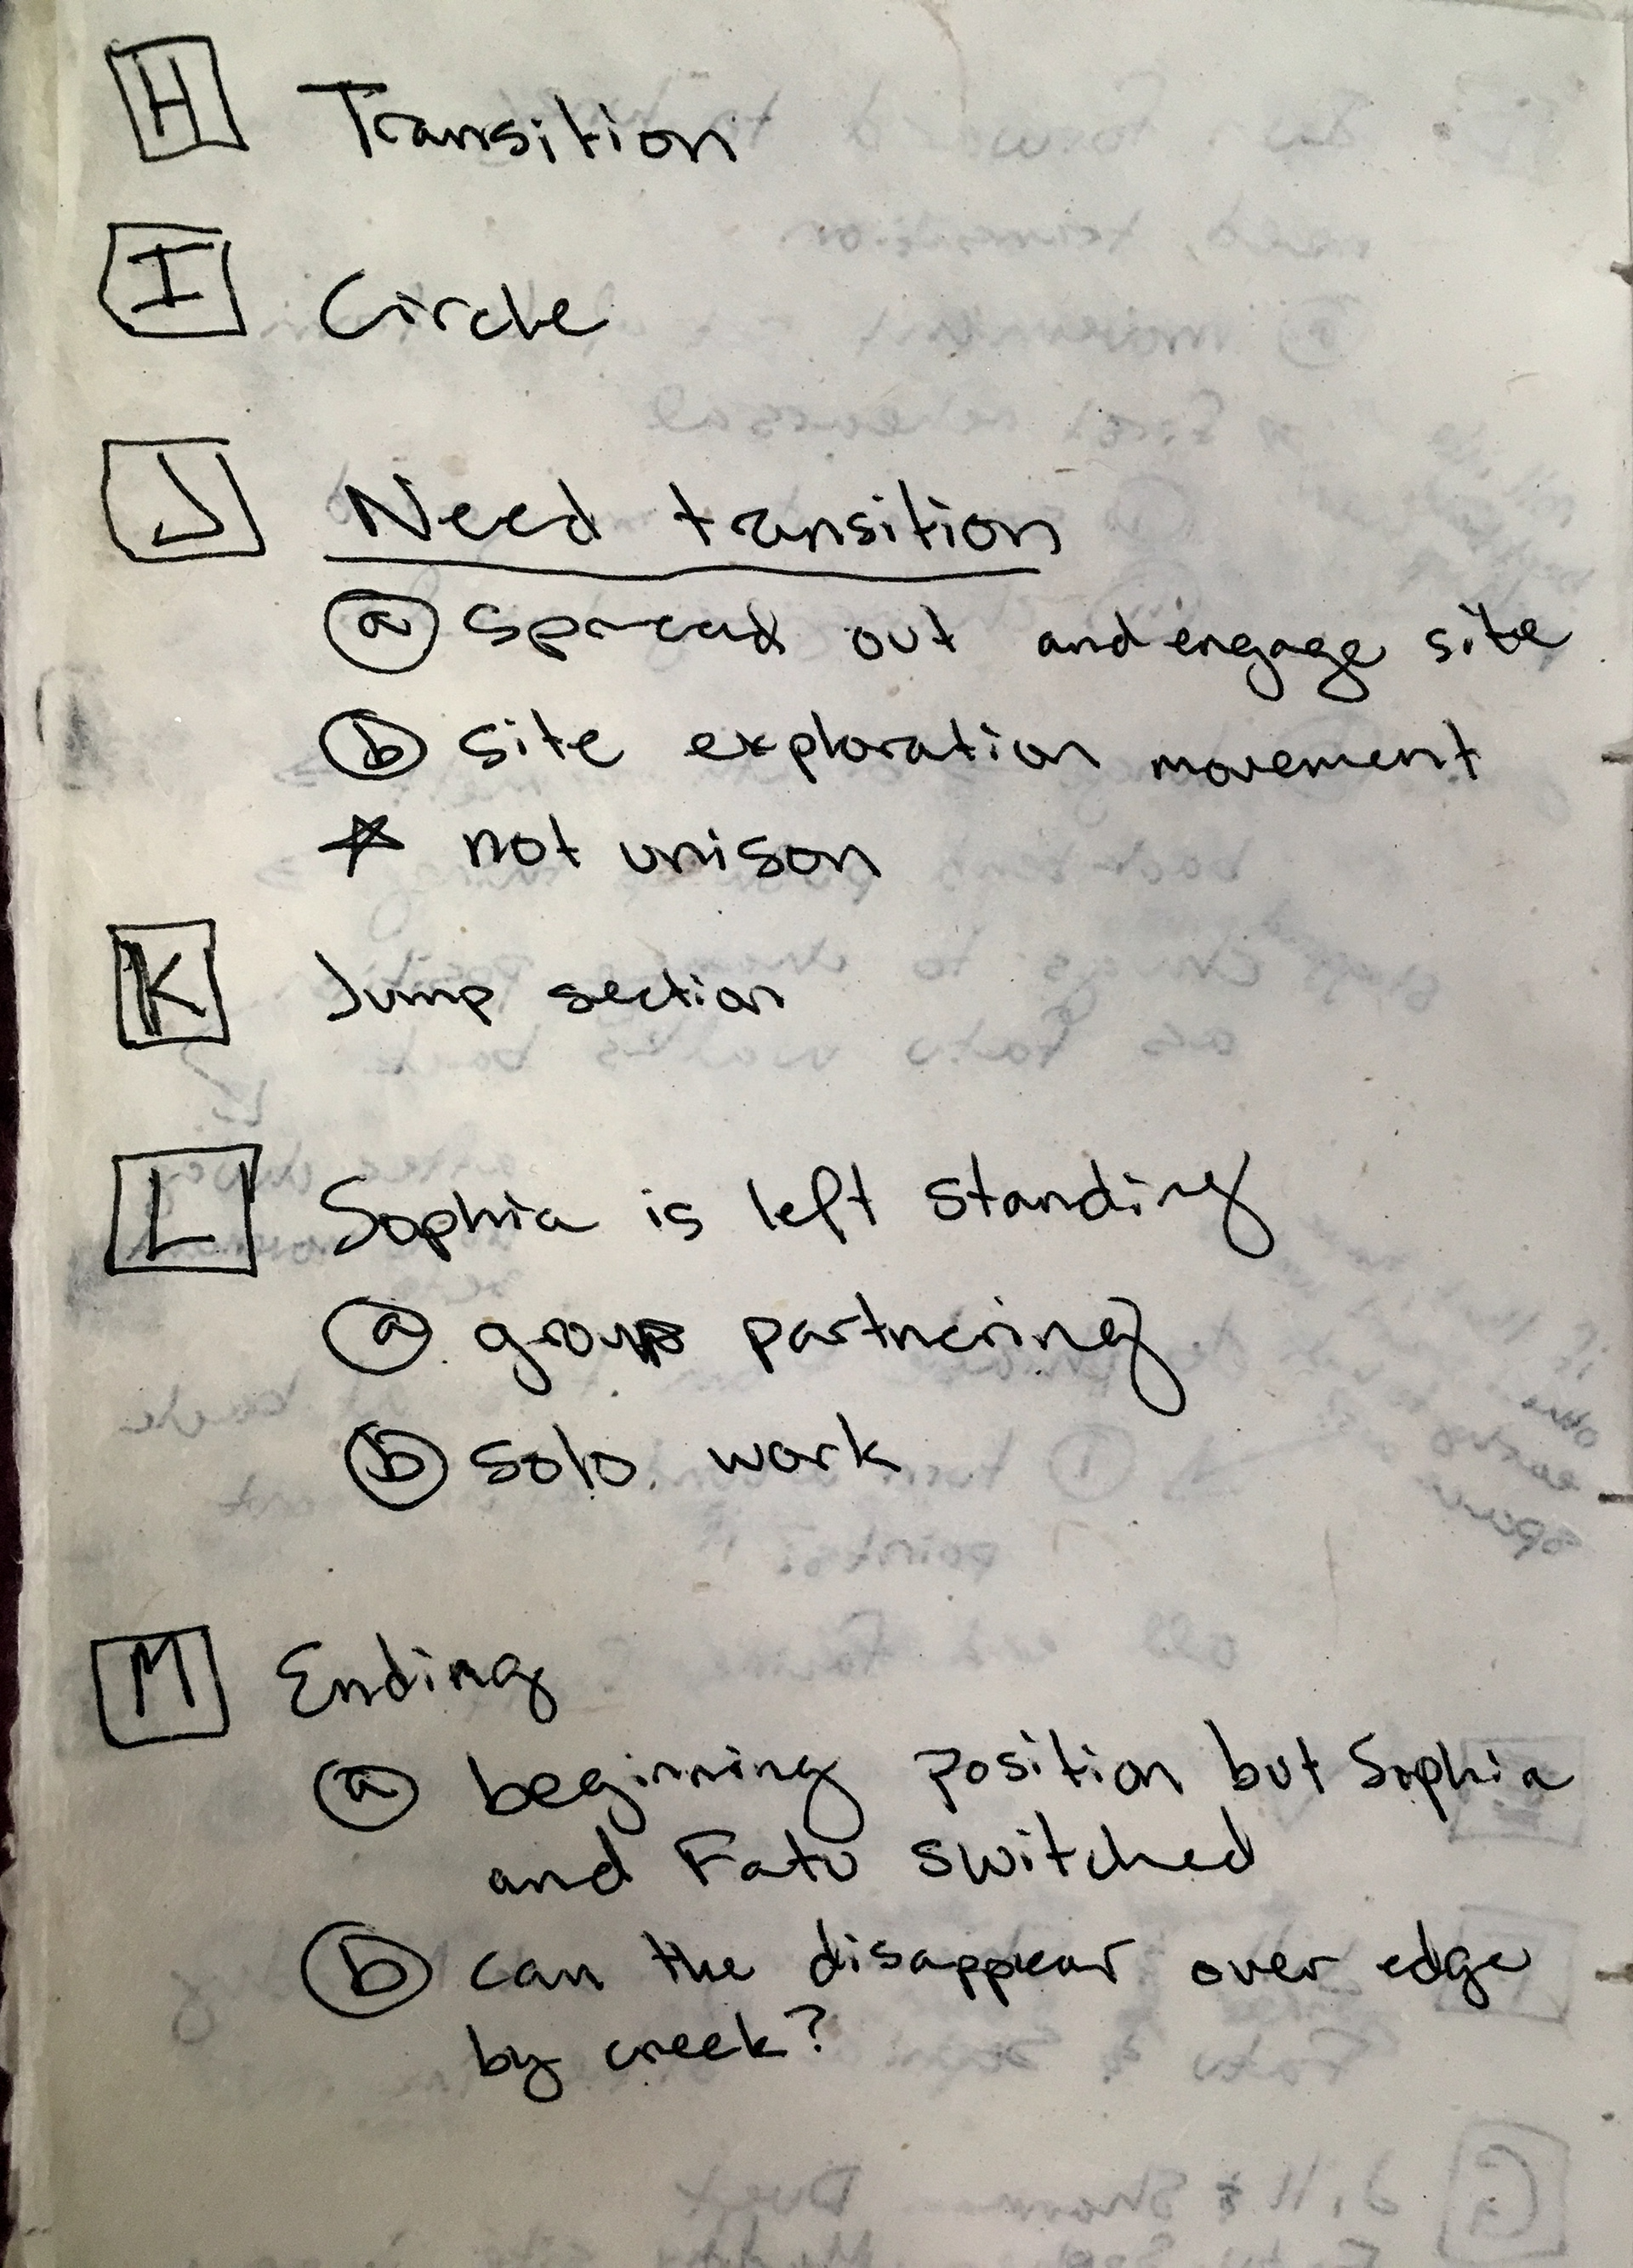 H Transition
I Circle
J Need transition
a spread out and engage site
b site exploration movement
☆ not unison
K Jump section
L Sophia is left standing
a group partnering
b solo work
M Ending
a beginning position but Sophia
and Fatu switched
b can the disappear over edge
by creek?